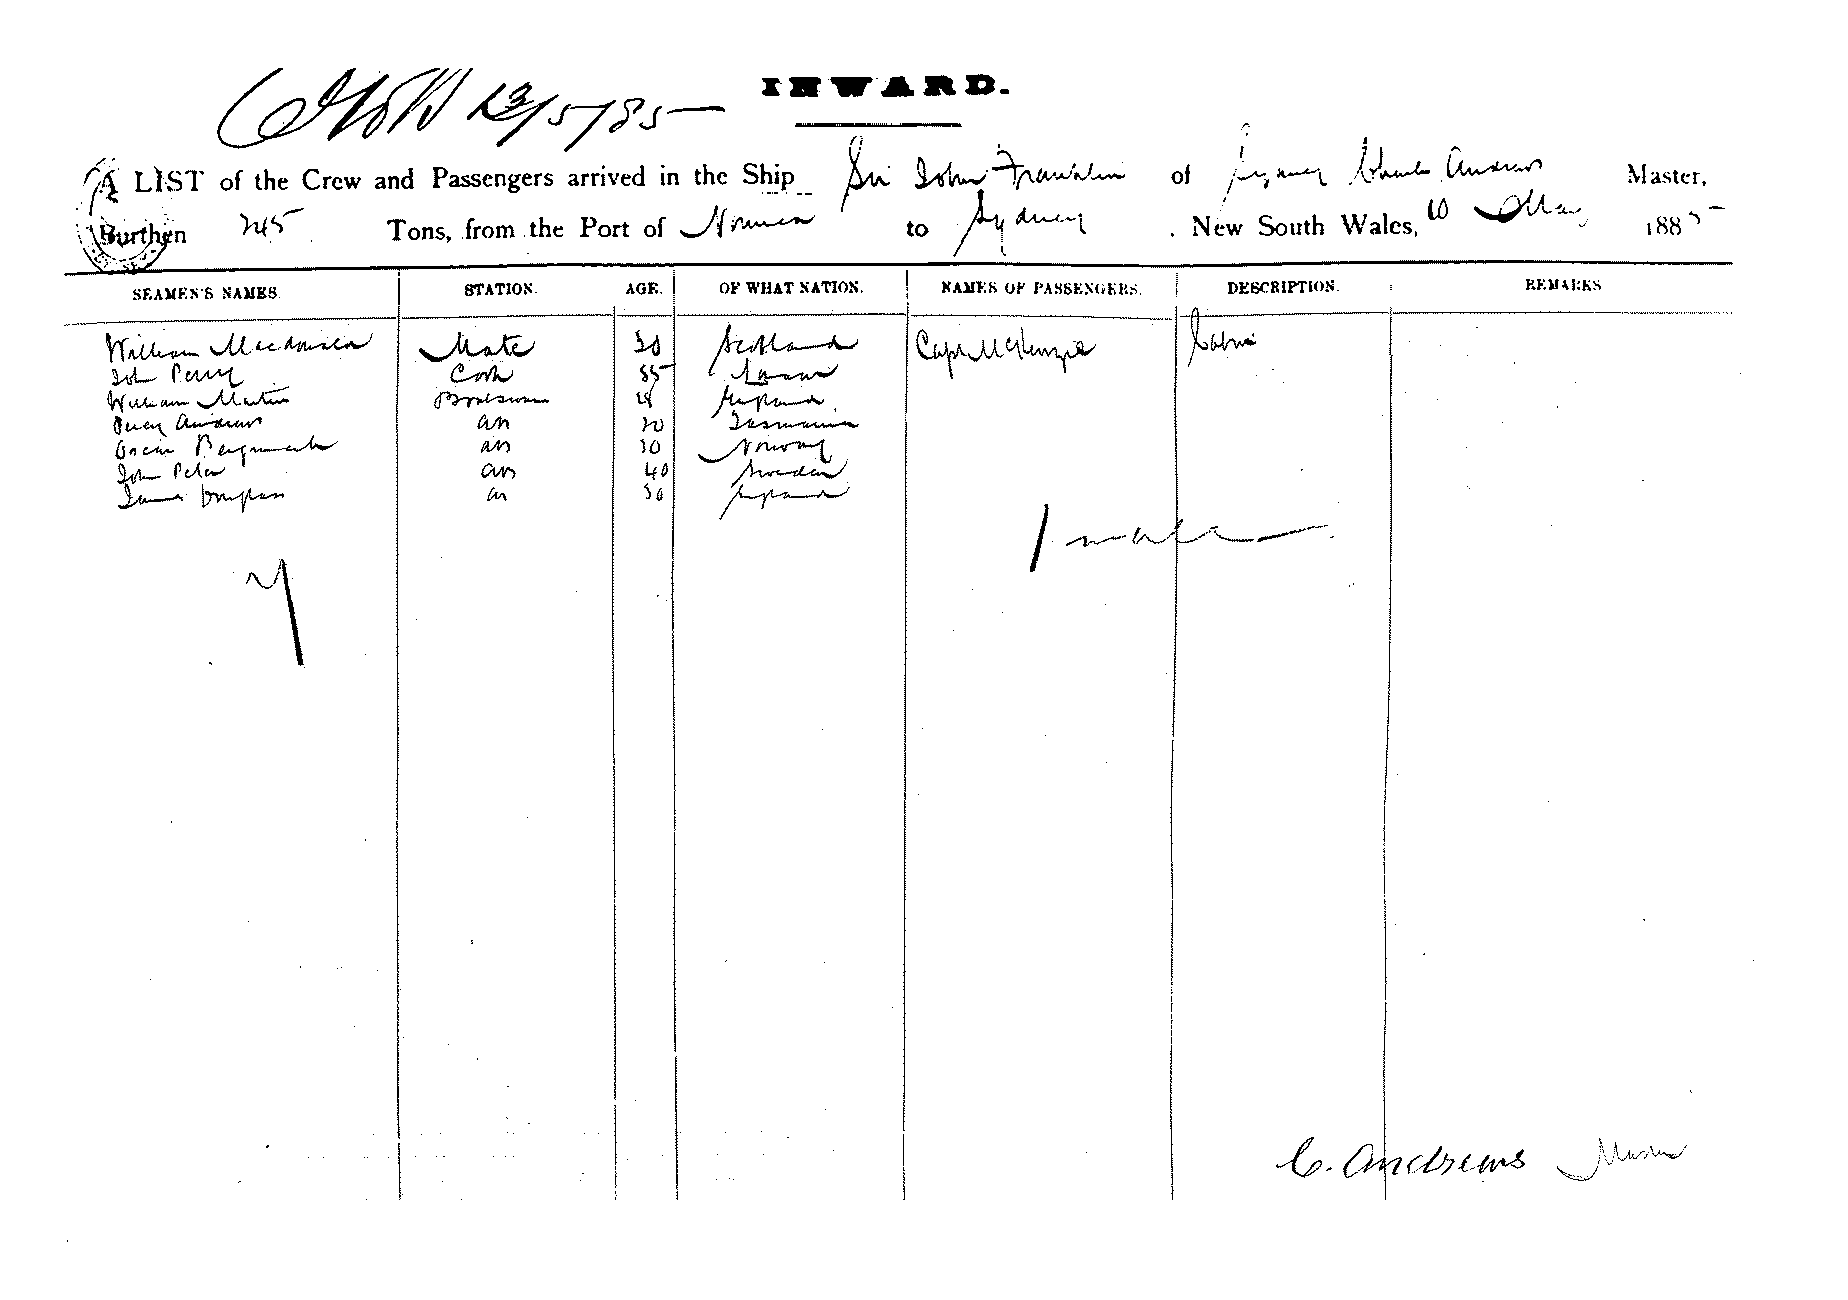 12/5/85
INWARD.
A LIST of the Crew and Passengers arrived in the Ship Sir John Franklin of Sydney Charles Andrews Master,
Burthen 245 Tons, from the Port of Noumea to Sydney. New South Wales, 10 May 1885
SEAMEN'S NAMES. STATION. AGE. OF WHAT NATION. NAMES OF PASSENGERS. DESCRIPTION. REMARKS
William Mate 30 Scotland Capt McKenzie Cabin
John Perry Cook 55
William Martin Boatswain England
Percy Andrews AB 20 Tasmania
Oscar AB 30 Norway
John Peter AB 40 Sweden
James Douglass 30 England
1 male
7
C. Andrews Master